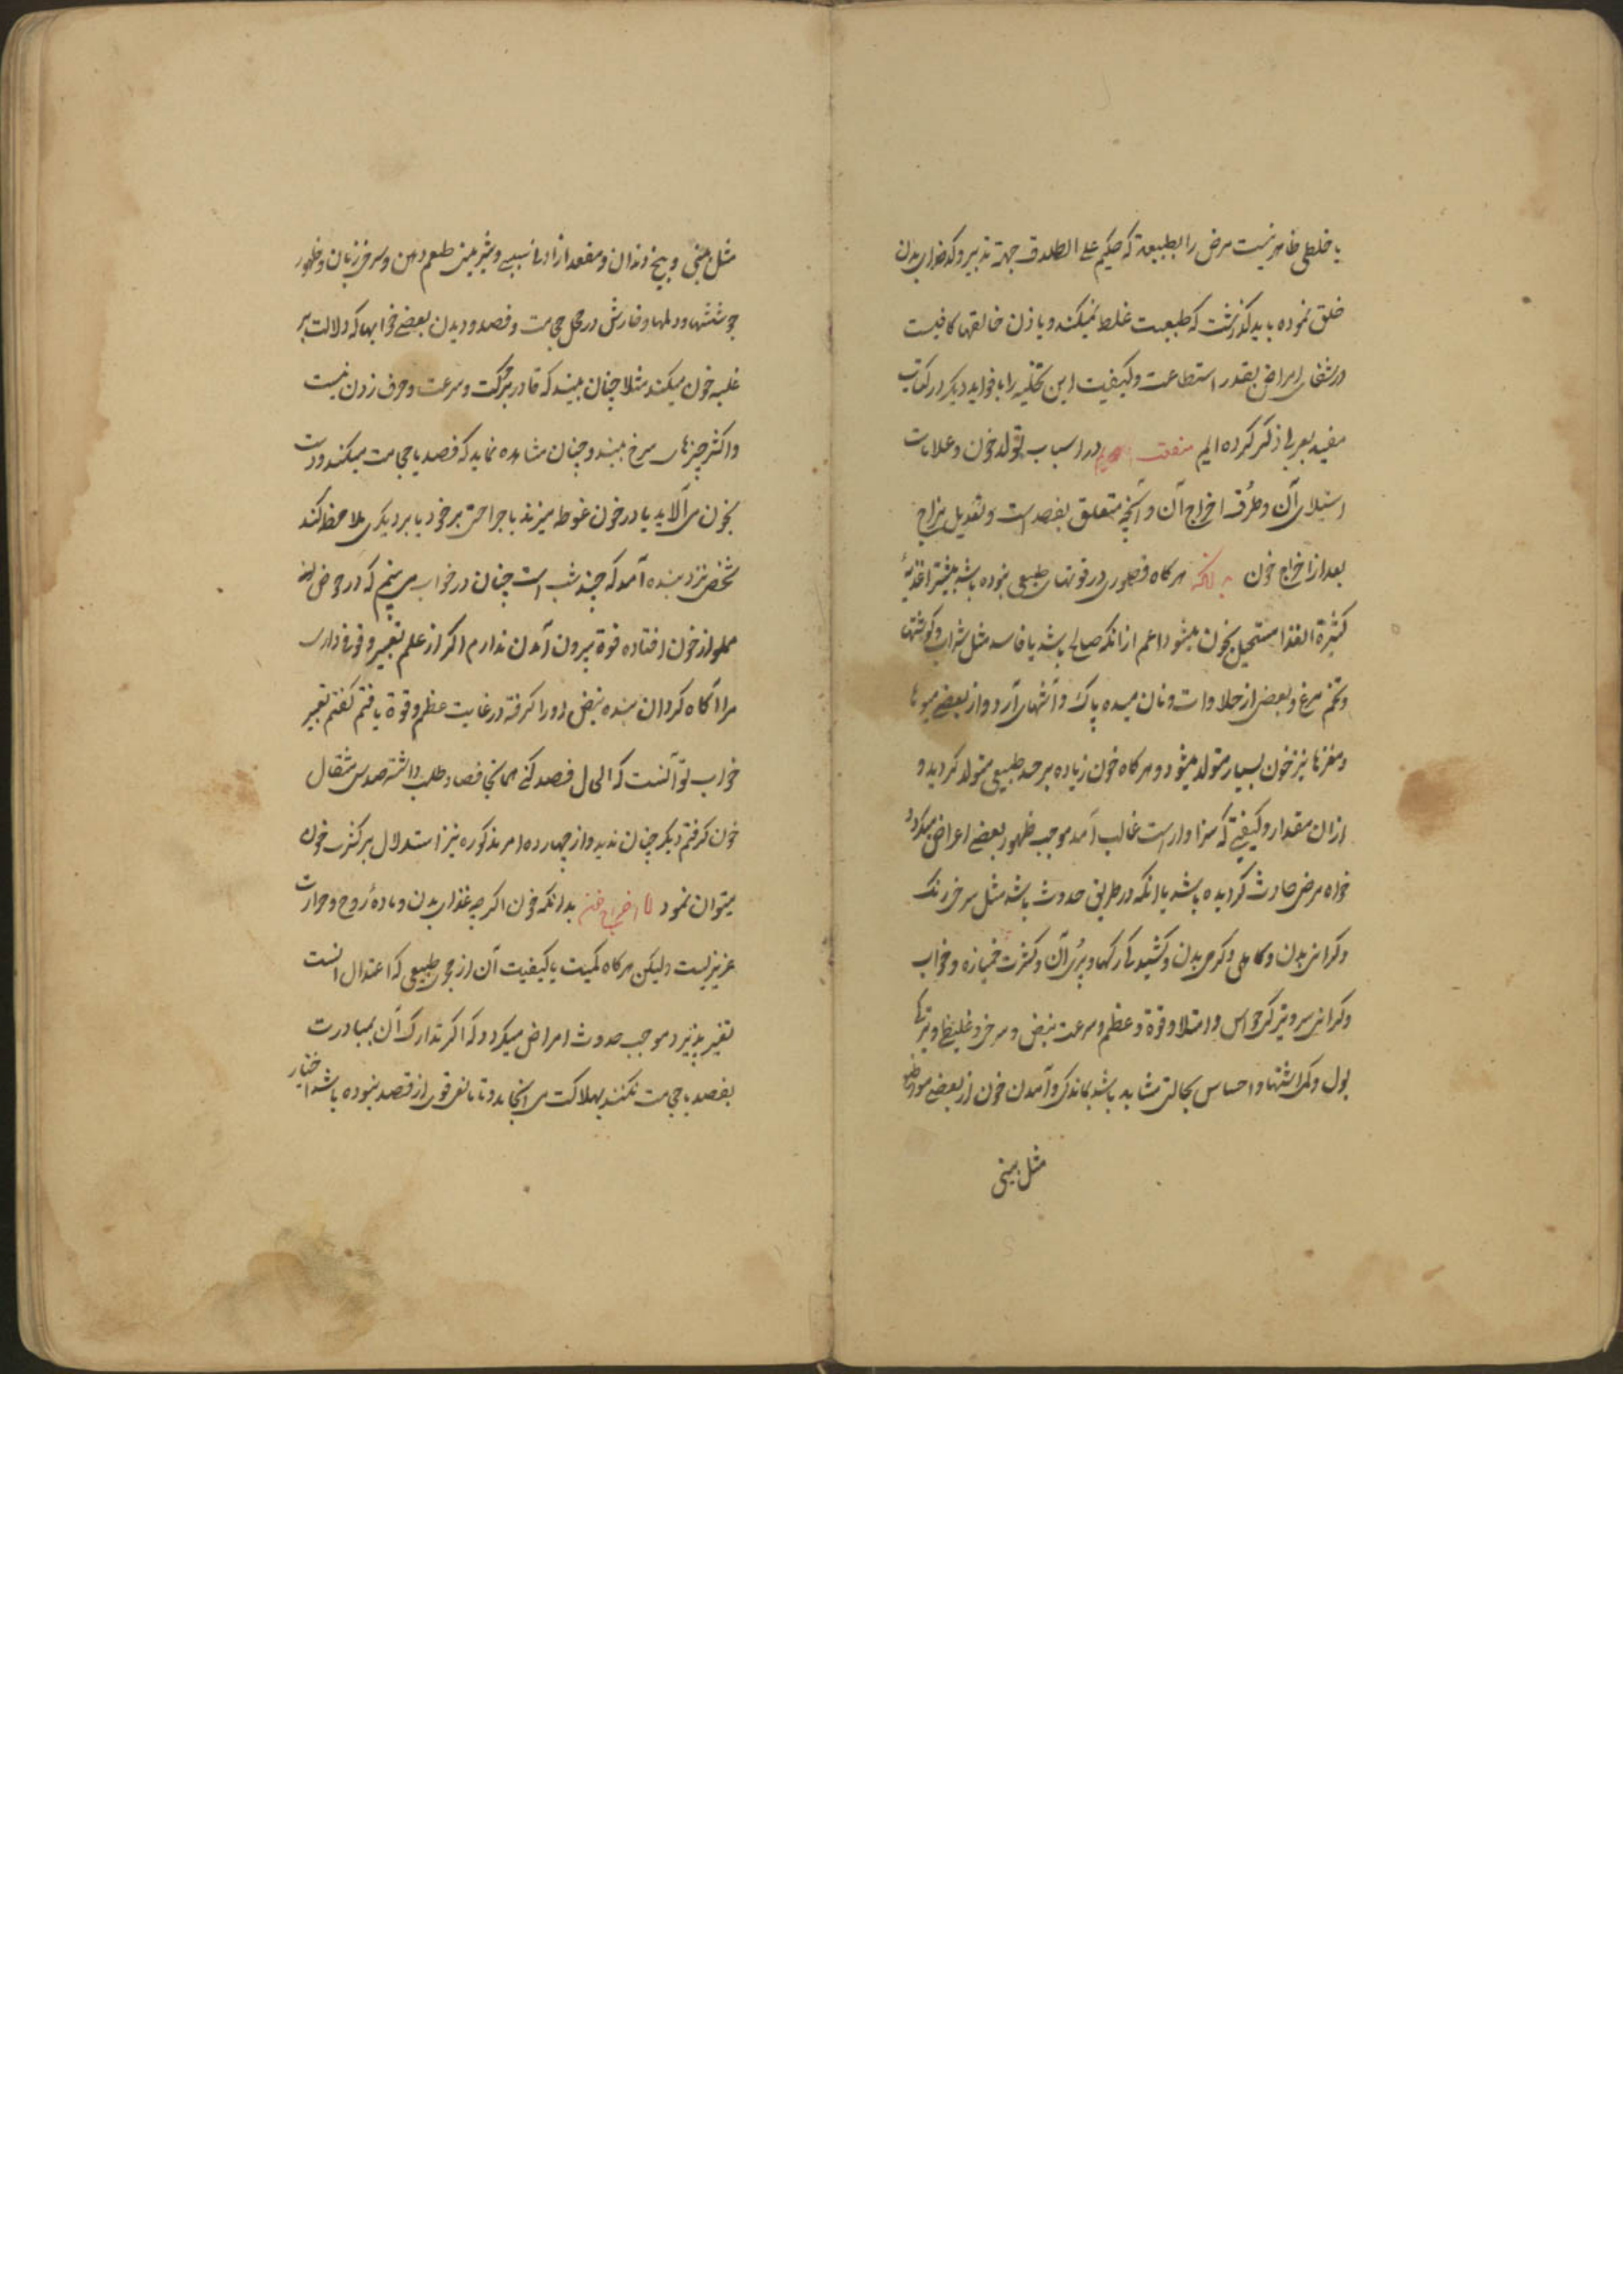 یا خلطی ظاهر نیست مرض را بطبیعة که حکیم علی الطلاق جهة تدبیر و کدخدای بدن
خلق نموده باید گذاشت که طبیعت غلط نمیکند و باذن خالقها کافیست
در شفای امراض بقدر استطاعت و کیفیت این تخلیه را با فواید دیگر در کتاب
مفید بعربی ذکر کرده ایم در اسباب تولد خون و علامات
استیلای آن و طرف اخراج آن و آنچه متعلق بفصد است و تعدیل مزاج
بعد از اخراج خون هرگاه قصوری در قوتهای طبیعی نبوده باشد بیشتر اغذیهٔ
کثیرة الغذا مستحیل بخون میشود اعم از انکه صالح باشد یا فاسد مثل شراب و گوشتها
و تخم مرغ و بعضی از حلاوات و نان میده پاک و آشهای آرد و از بعضی میوها
و مغزها نیز خون بسیار متولد میشود و هرگاه خون زیاده بر حد طبیعی متولد گردید و
از ان مقدار و کیفیتی که سزاوار است غالب آمد موجب ظهور بعضی اعراض میگردد
خواه مرض حادث گردیده باشد یا انکه در طریق حدوث باشد مثل سرخی رنگ
و گرانی بدن و کاهلی و گرمی بدن و کشیدگی رگها و پری آن و کثرت خمیازه و خواب
و گرانی سر و تیرگی حواس و امتلا و قوة و عظم و سرعت نبض و سرخی و غلیظی و تیرگی
بول و کمی اشتها و احساس بحالتی مشابه باشد بماندگی و آمدن خون از بعضی مواضع
مثل بینی
مثل بینی و بیخ دندان و مقعد از ادنا سببی و شیرینی طعم دهن و سرخی زبان و ظهور
جوششها و دملها و خارش در محل حجامت و فصد و دیدن بعضی خوابها که دلالت بر
غلبه خون میکند مثلا چنان بیند که قادر بر حرکت و سرعت و حرف زدن نیست
و اکثر چیزهای سرخ بیند و چنان مشاهده نماید که فصد یا حجامت میکند و دست
بخون می آلاید یا در خون غوطه میزند یا جراحتی بر خود یا بر دیگری ملاحظه کند
شخصی نزد بنده آمد که چند شب است چنان در خواب می بینم که در حوض
مملو از خون افتاده قوة بیرون آمدن ندارم اگر از علم تعبیر وقوفی داری
مرا آگاه گردان بنده نبض او را گرفته در غایت عظم و قوة یافتم گفتم تعبیر
خواب تو آنست که الحال فصد کنی همانجا فصاد طلب داشته صد و سی مثقال
خون گرفتم دیگر چنان ندید و از چهارده امر مذکوره نیز استدلال بر کثرت خون
میتوان نمود بدانکه خون اگرچه غذای بدن و مادهٔ روح و حرارت
عزیزیست ولیکن هرگاه کمیت یا کیفیت آن از مجری طبیعی که اعتدال انست
تغیر پذیرد موجب حدوث امراض میگردد که اگر تدارک آن بمبادرت
بفصد یا حجامت نکنند بهلاکت می انجامد و تا مانع قوی از فصد نبوده باشد اختیار